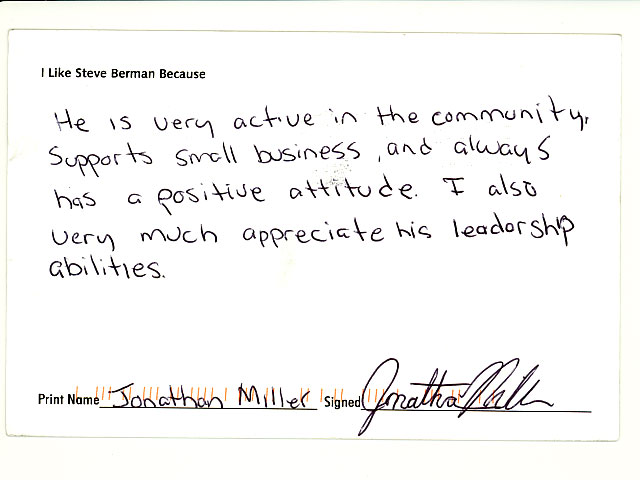 I Like Steve Berman Because
He is very active in the community,
supports small business, and always
has a positive attitude. I also
very much appreciate his leadorship
abilities.
Print Name Jonathan Miller Signed Jonathan Miller